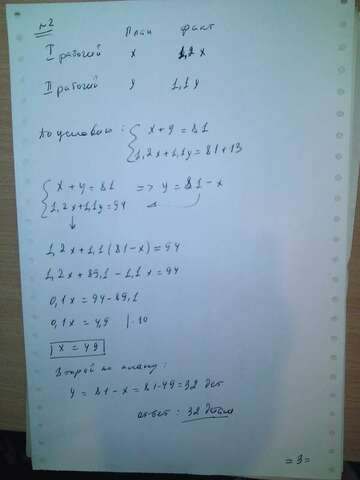 №2
План факт
I рабочий x 1,2 x
II рабочий y 1,1 y
По условию: { x + y = 81
1,2x + 1,1y = 81 + 13
{ x + y = 81 => y = 81 - x
1,2x + 1,1y = 94
1,2x + 1,1 (81 - x) = 94
1,2x + 89,1 - 1,1x = 94
0,1x = 94 - 89,1
0,1x = 4,9 | · 10
x = 49
Второй по плану:
y = 81 - x = 81 - 49 = 32 дет
ответ: 32 детали
= 3 =